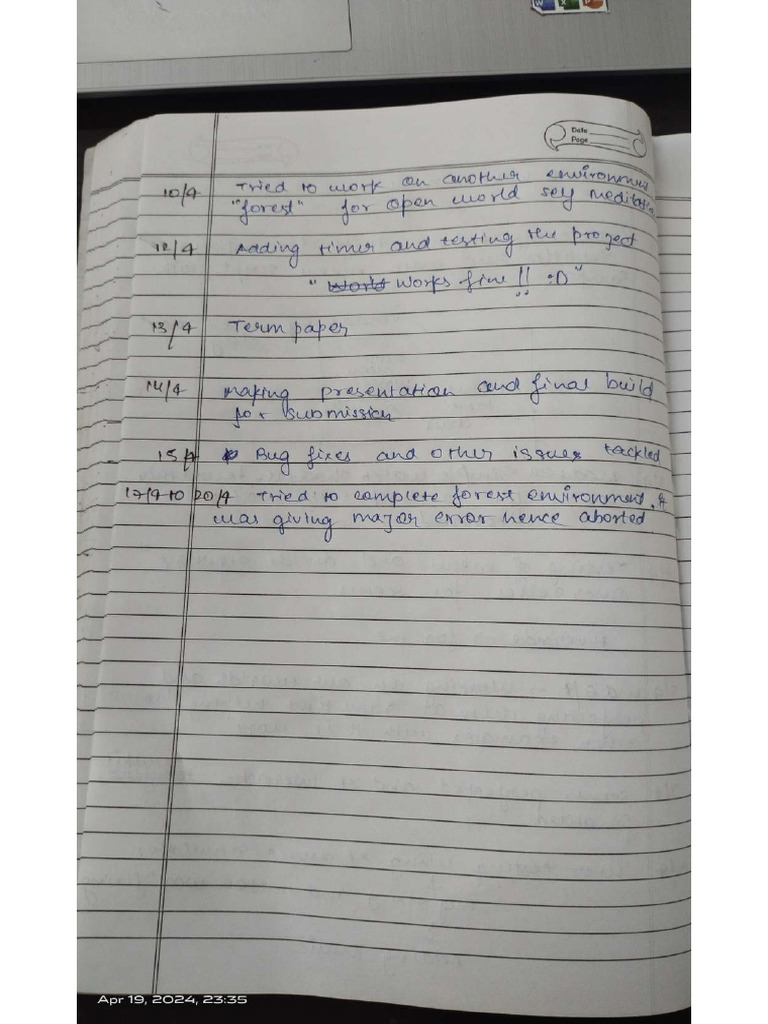 W X P
Date
Page
10/4 Tried to work on another environment
"forest" for open world self meditation
12/4 Adding timer and testing the project
" World Works fine!! :D "
13/4 Term paper
14/4 Making presentation and final build
for submission
15/4 Bug fixes and other issues tackled
17/4 to 20/4 Tried to complete forest environment, it
was giving major error hence aborted
Apr 19, 2024, 23:35